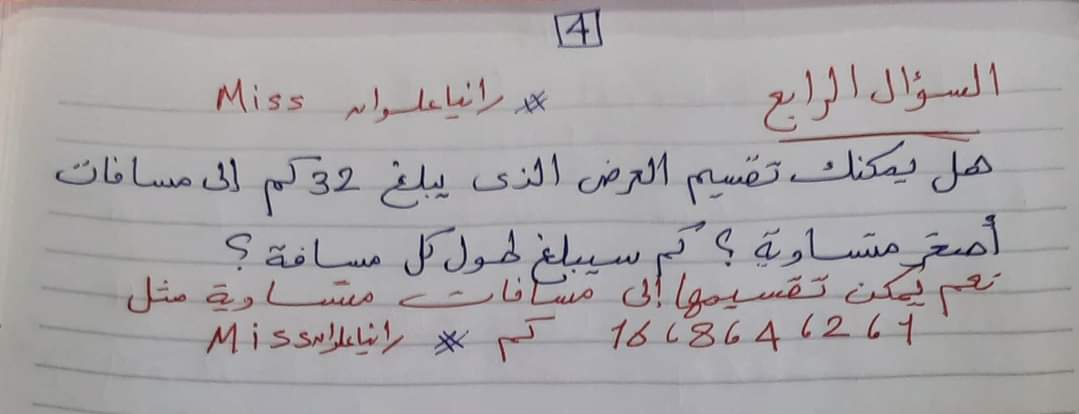 4
السؤال الرابع * رانيا علوان Miss
هل يمكنك تقسيم العرض الذى يبلغ 32 كم إلى مسافات
أصغر متساوية ؟ كم سيبلغ طول كل مسافة ؟
نعم يمكن تقسيمها إلى مسافات متساوية مثل
1 ، 2 ، 4 ، 8 ، 16 كم * رانيا علوان Miss